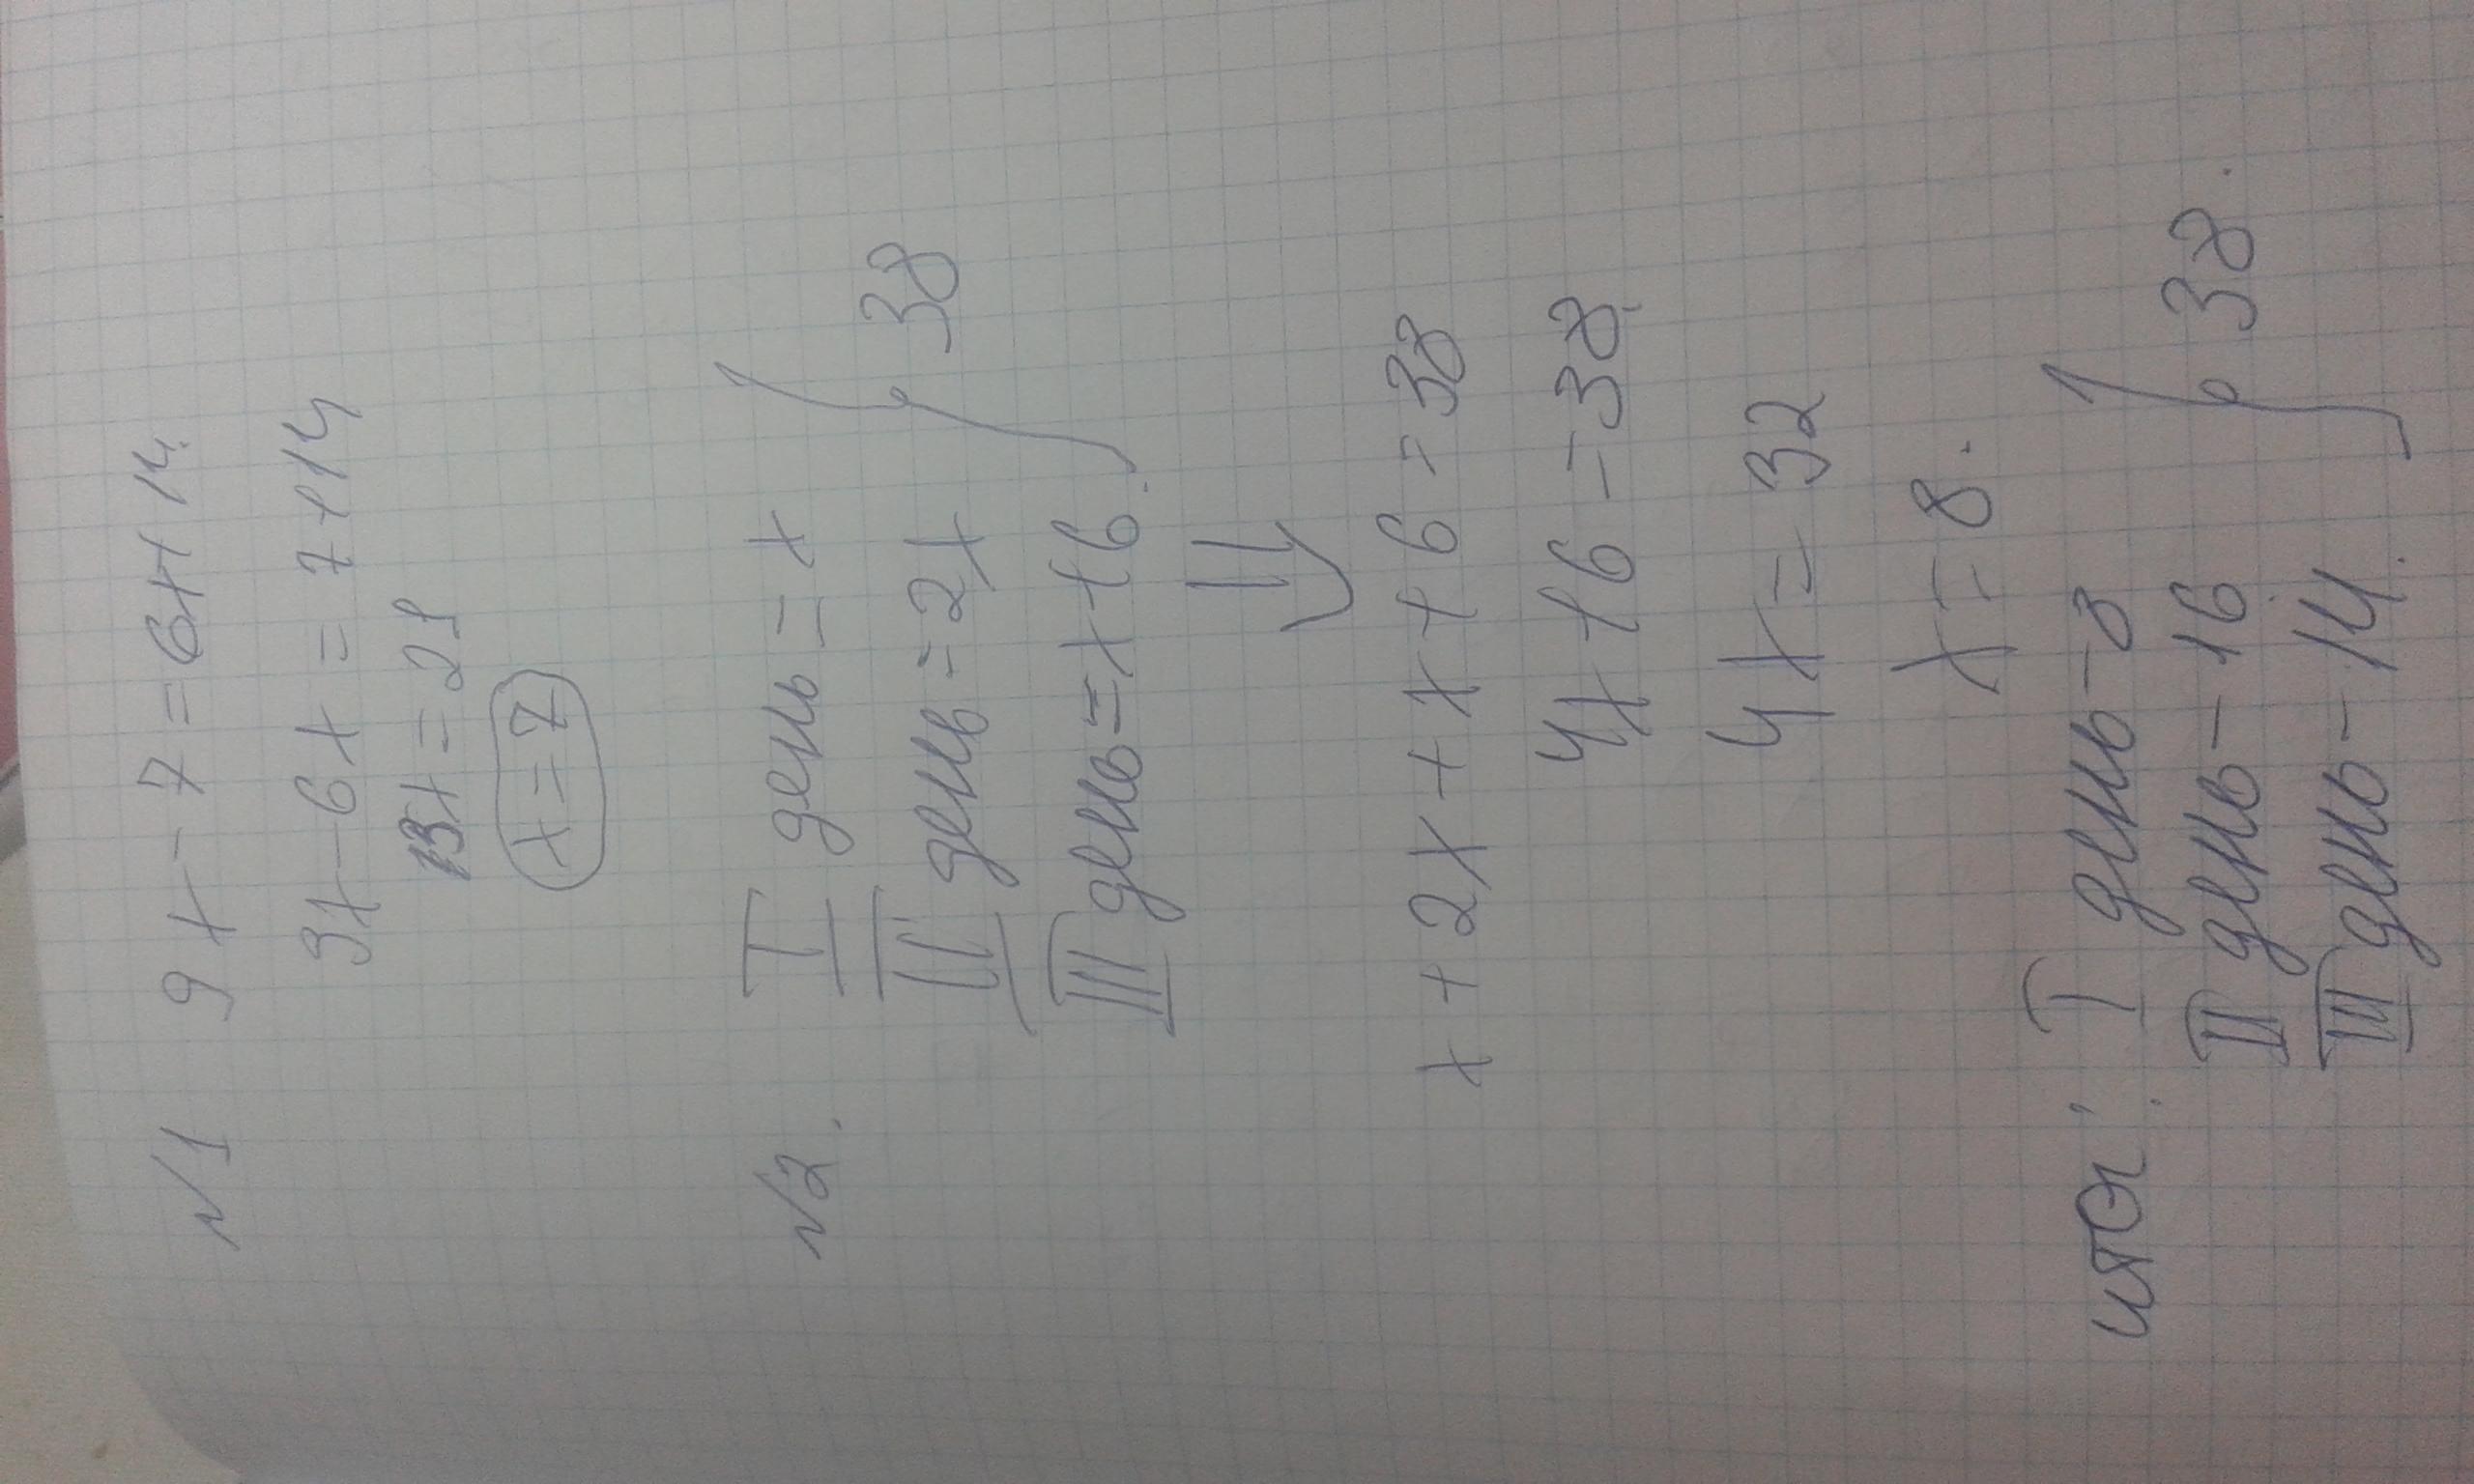 №1 9x-7=6x+14.
3x-6x=7+14
13x=21
x=7
№2. I день = x
II день = 2x
III день = x+6.
} 38
⇓
x+2x+x+6=38
4x+6=38.
4x=32
x=8.
итог: I день-8
II день-16
III день-14.
} 38.